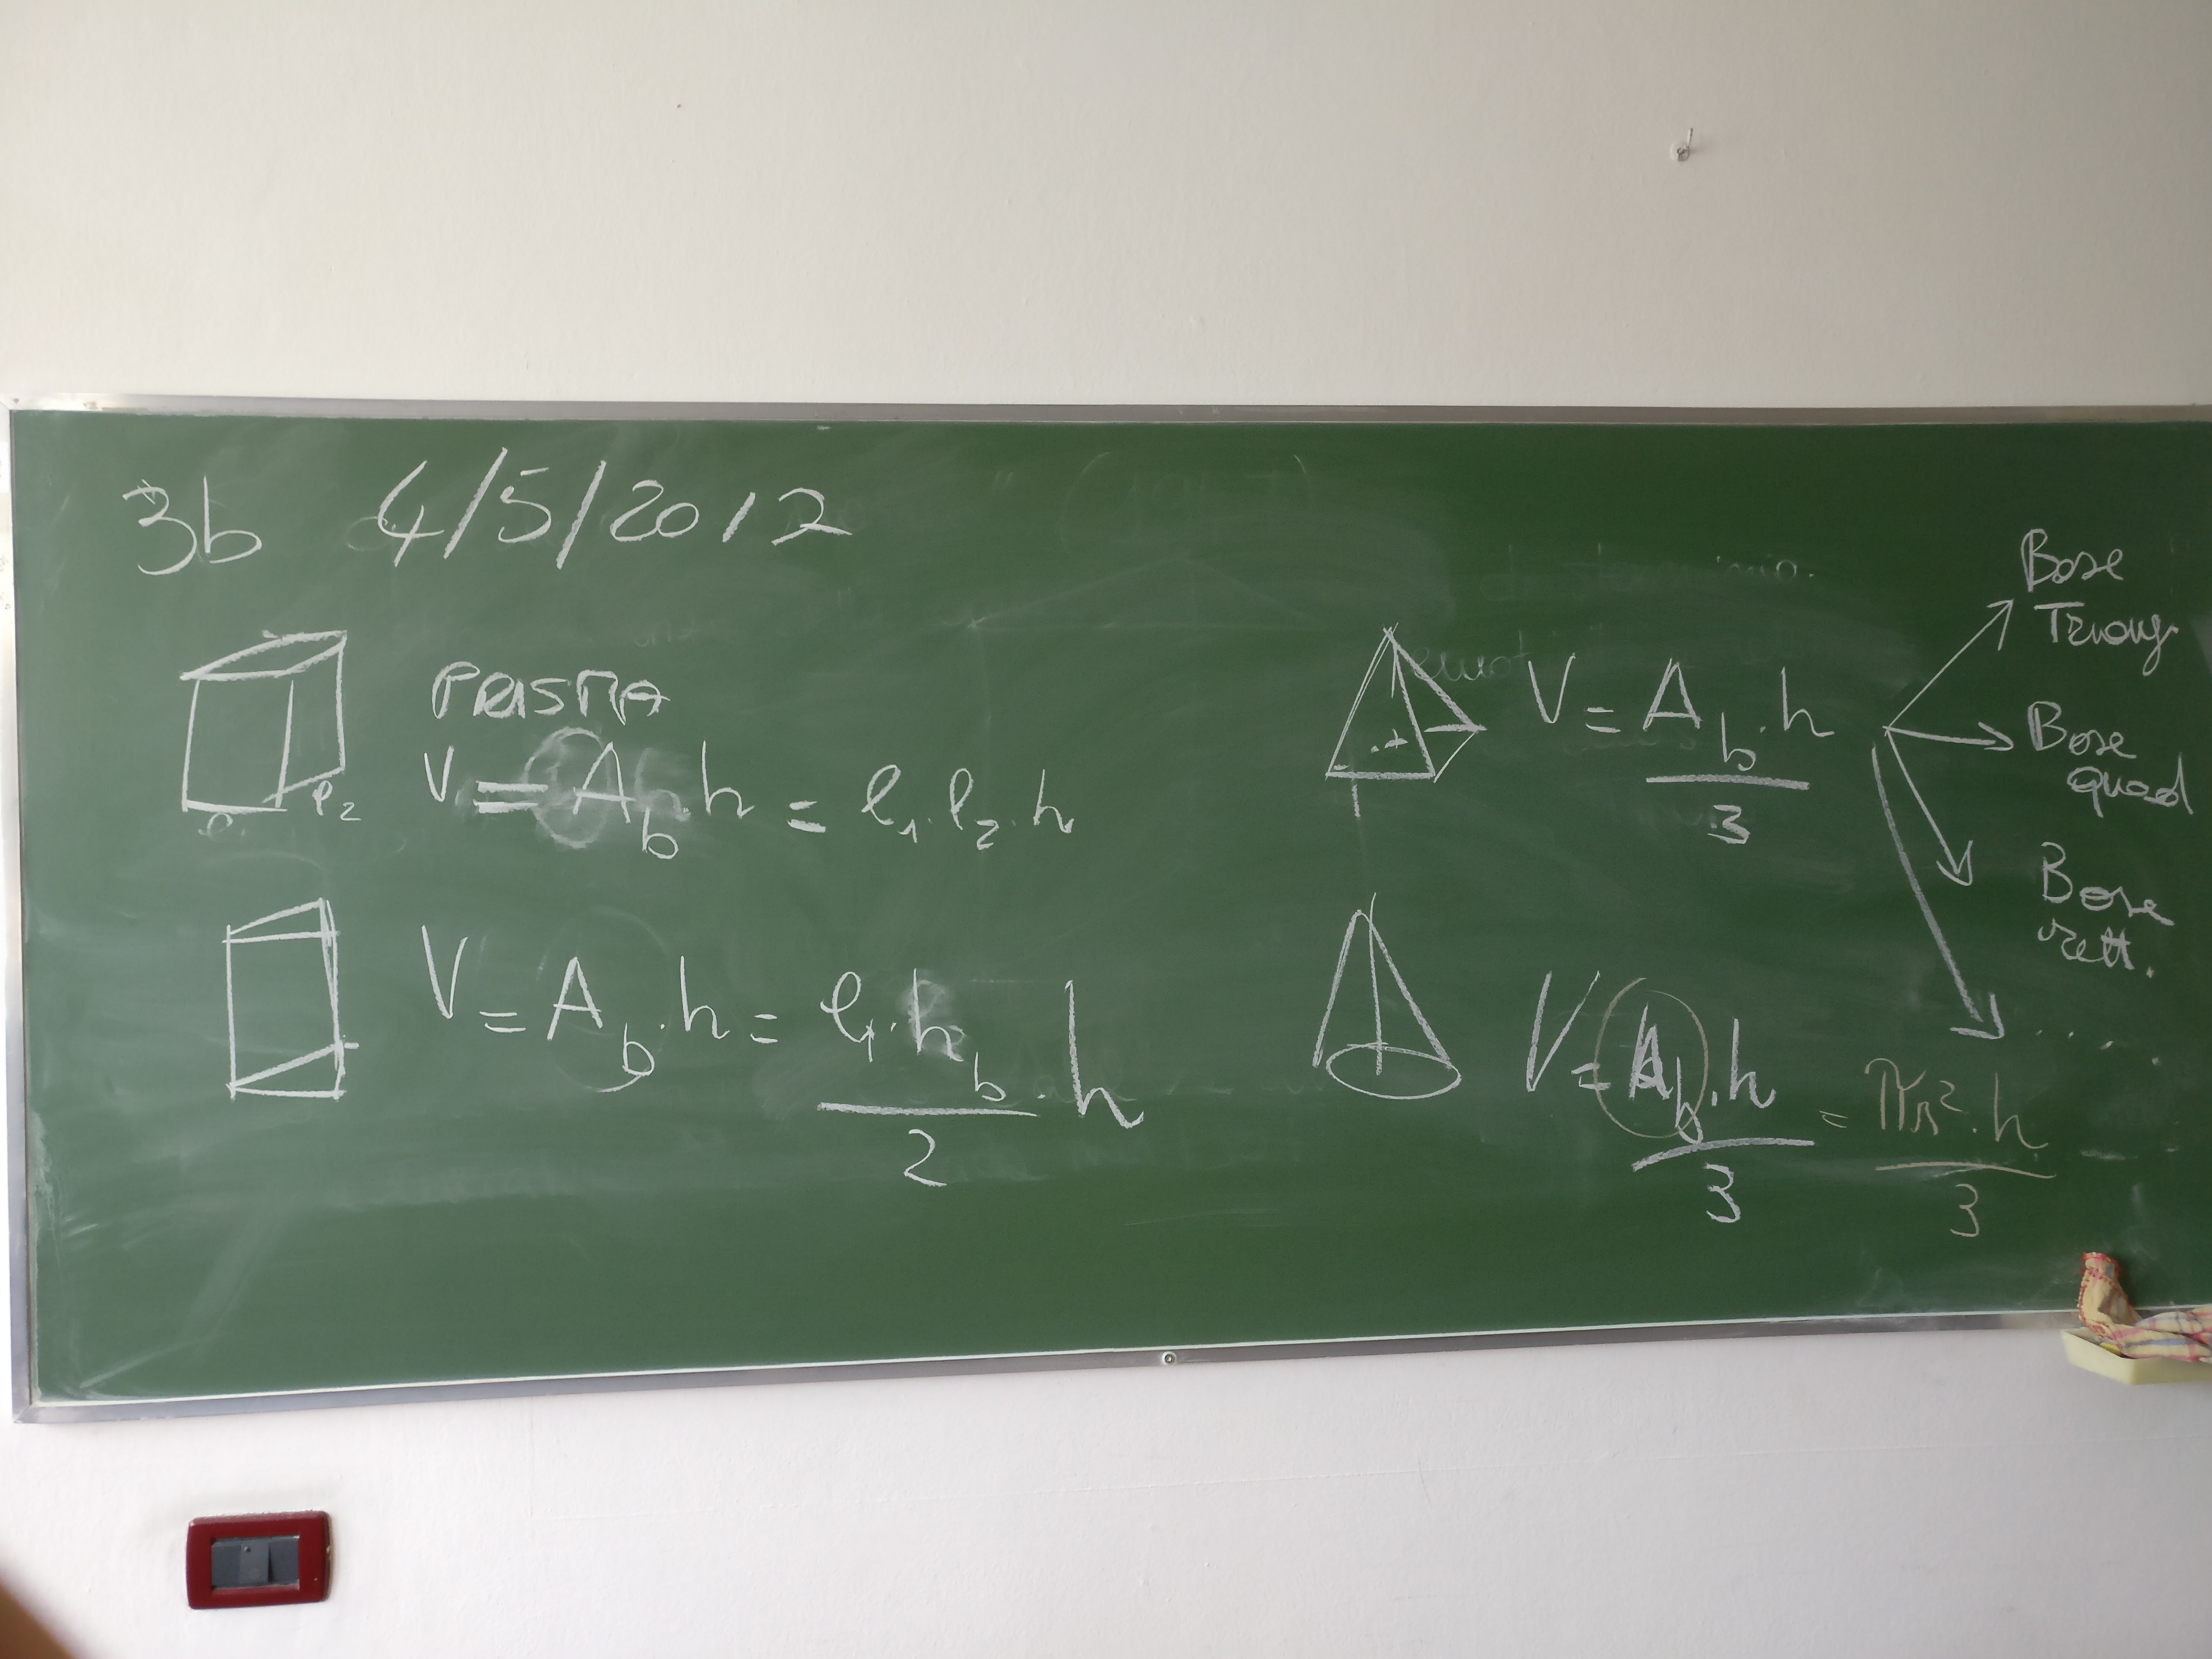 3b 4/5/2012
PRISMA
V = Ab · h = l1 · l2 · h
l2
V = Ab · h = l1 · hb / 2 · h
V = Ab · h / 3
Base
Triang.
Base
quad
Base
rett.
.....
V = Ab · h / 3 = πr² · h / 3